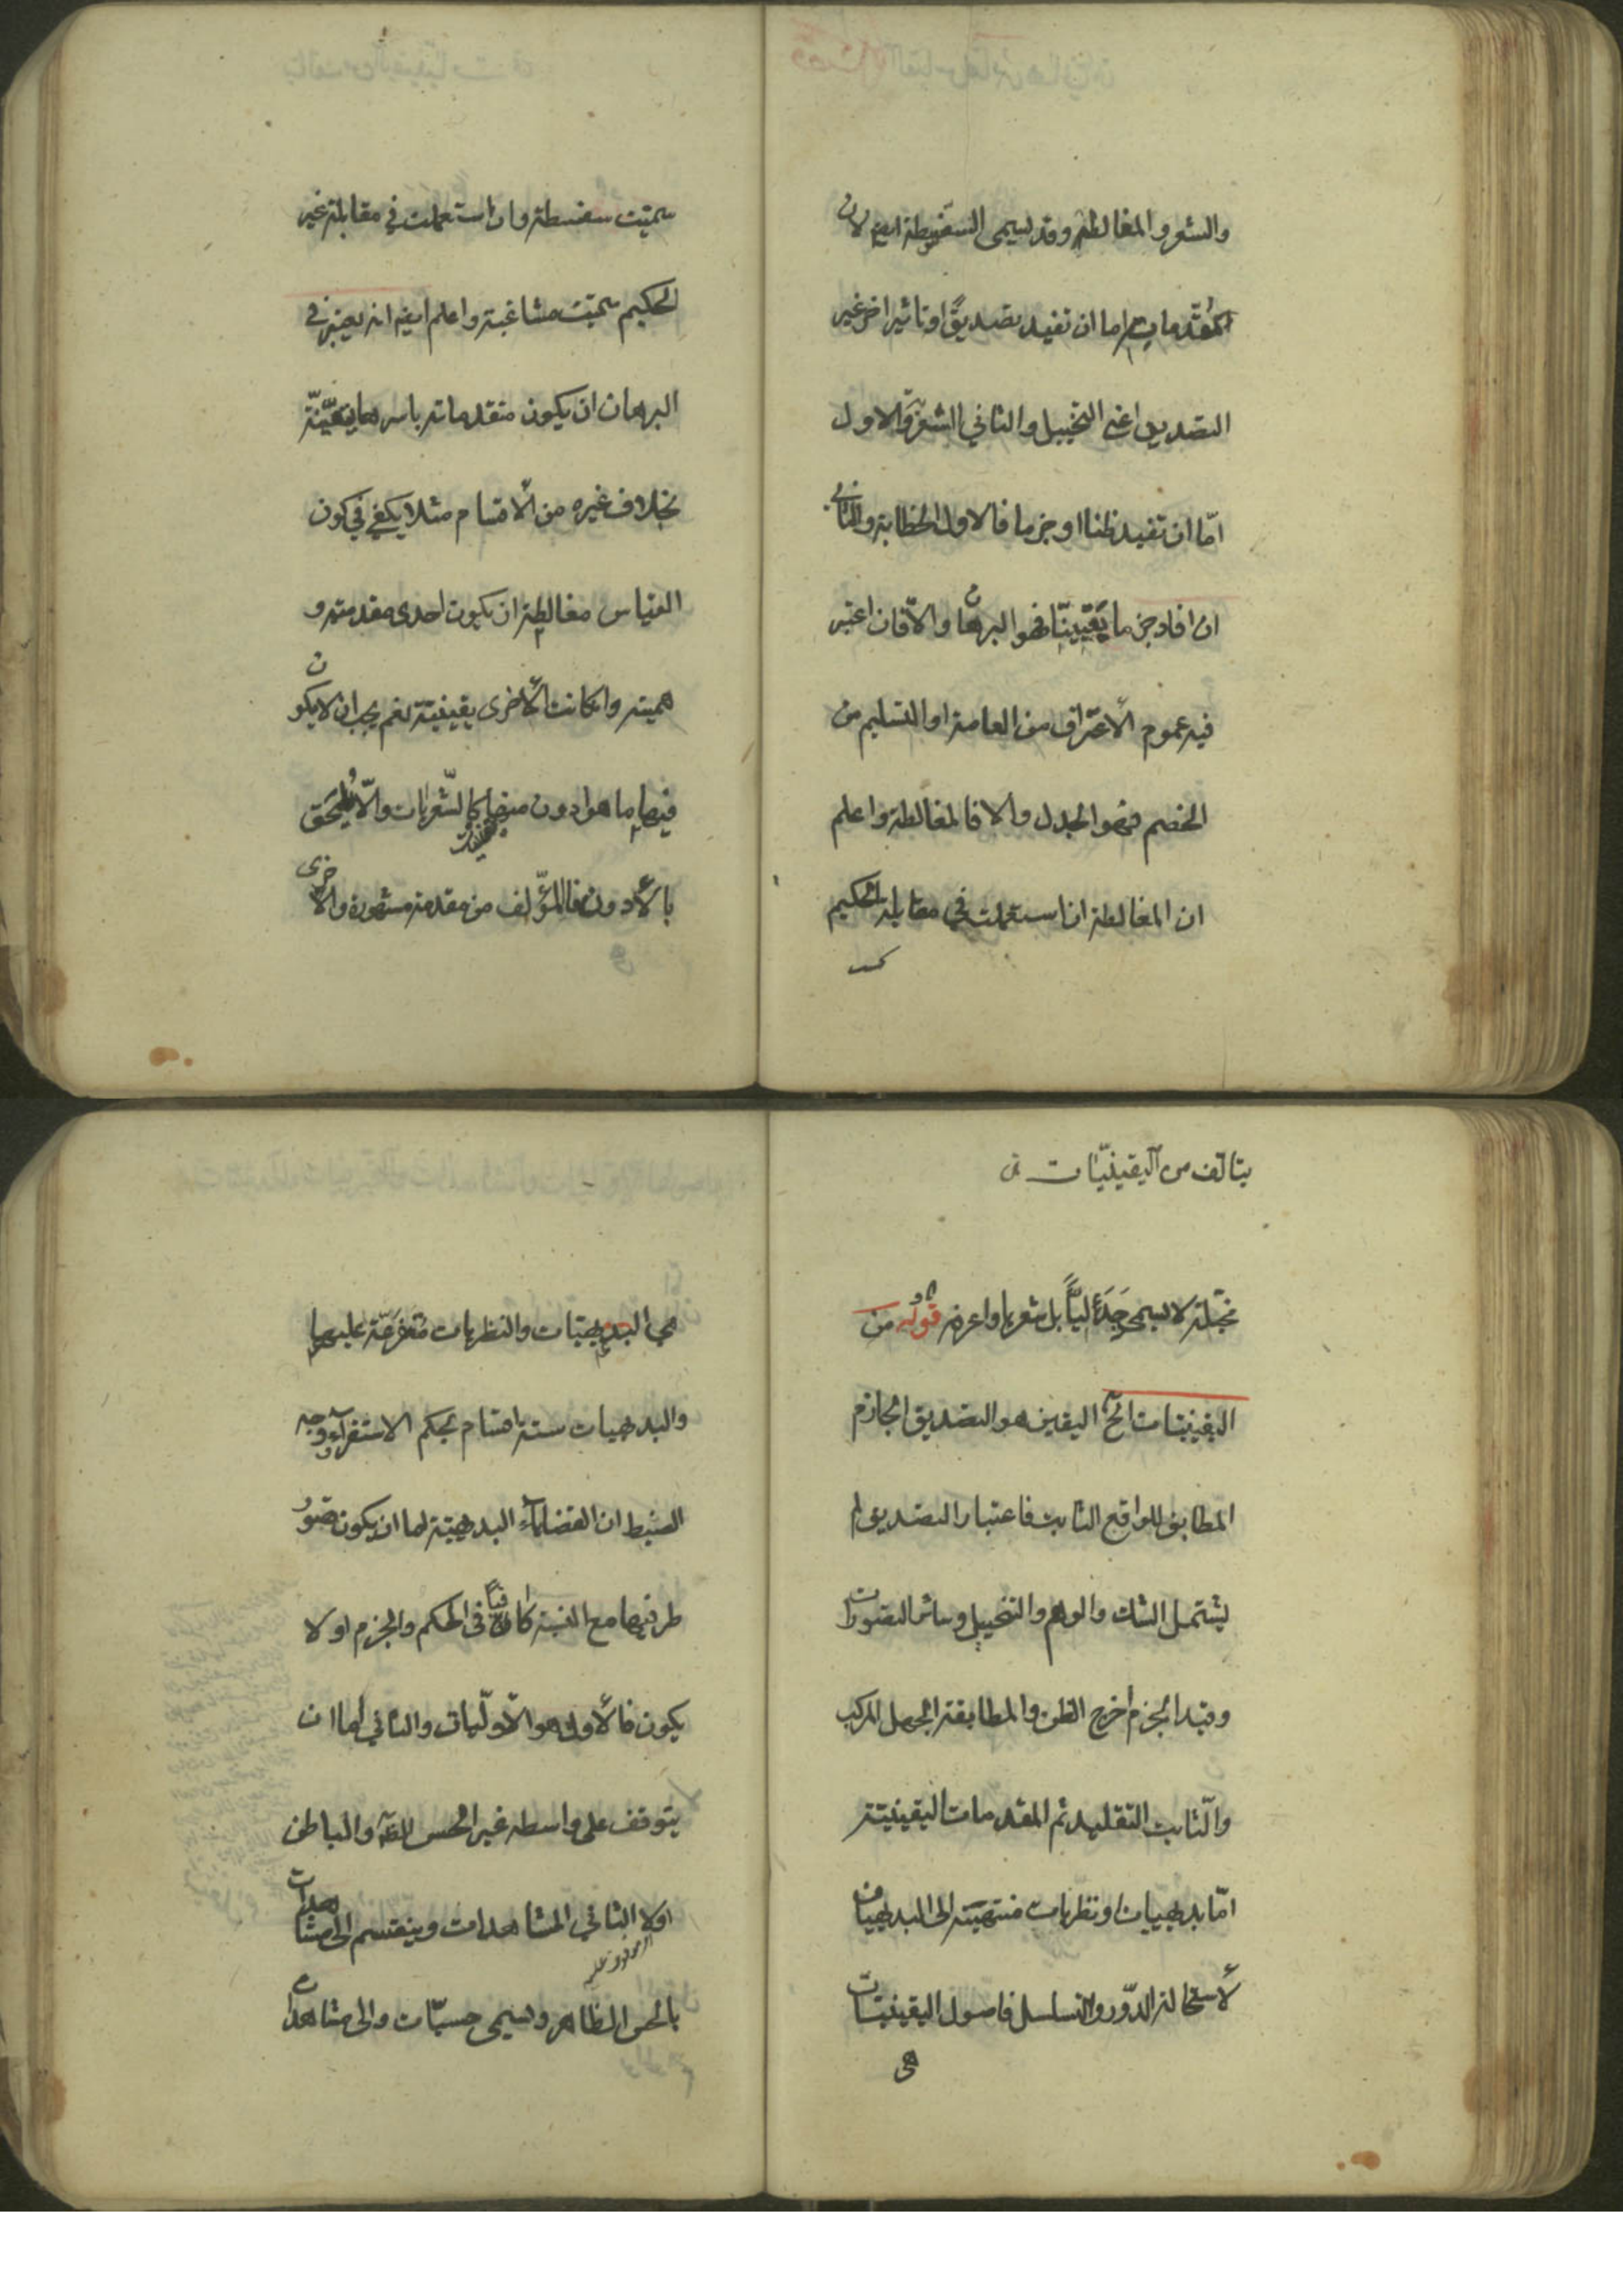 والشعر والمغالطة وقد يسمى السفسطة ايض لان
المقدمات اما ان تفيد تصديقًا او تاثيرا اخر غير
التصديق اعنى التخييل والثاني الشعر والاول
امّا ان تفيد ظنا او جزما فالاول الخطابة والثاني
ان افاد جزما يقينيّا فهو البرهان والّا فان اعتبر
فيه عموم الاعتراف من العامة او التسليم من
الخصم فهو الجدل والا فالمغالطة واعلم
ان المغالطة ان استعملت في مقابلة الحكيم
سميت سفسطة وان استعملت في مقابلة غير
الحكيم سميت مشاغبة واعلم ايض انه يعتبر في
البرهان ان يكون مقدماته باسرها يقينيّة
بخلاف غيره من الأقسام مثلا يكفي في كون
القياس مغالطة ان يكون احدى مقدمتيه و
همية وانكانت الأخرى يقينية نعم يجب ان لا يكون
فيها ما هو ادون منها كالشّعريات والّا يلحق
بالأدون فالمؤلّف من مقدمة مشهورة والاخرى
يتالف من اليقينيّات
مخيّلة لا يسمى جدليًّا بل شعريا واعرفه قوله من
اليقينيات الخ اليقين هو التصديق الجازم
المطابق للواقع الثابت فاعتبار التصديق لم
يشتمل الشك والوهم والتخييل وسائر التصورات
وقيد الجزم اخرج الظن والمطابقة الجهل المركب
والثّابت التقليد ثم المقدمات اليقينيّة
امّا بديهيات او نظريات منتهية الى البديهيات
لأستحالة الدّور والتسلسل فاصول اليقينيّات
هى
هي البديهيّات والنظريات متفرّعة عليها
والبديهيات ستة اقسام بحكم الاستقرآء ووجه
الضبط ان القضايا البديهية اما ان يكون تصوّر
طرفيها مع النسبة كافيًا فى الحكم والجزم او لا
يكون فالأول هو الأوّليات والثاني اما ان
يتوقف على واسطه غير الحس الظاهر والباطن
اولا الثاني المشاهدات وينقسم الى مشاهدات
بالحس الظاهر ويسمى حسيّات والى مشاهدات